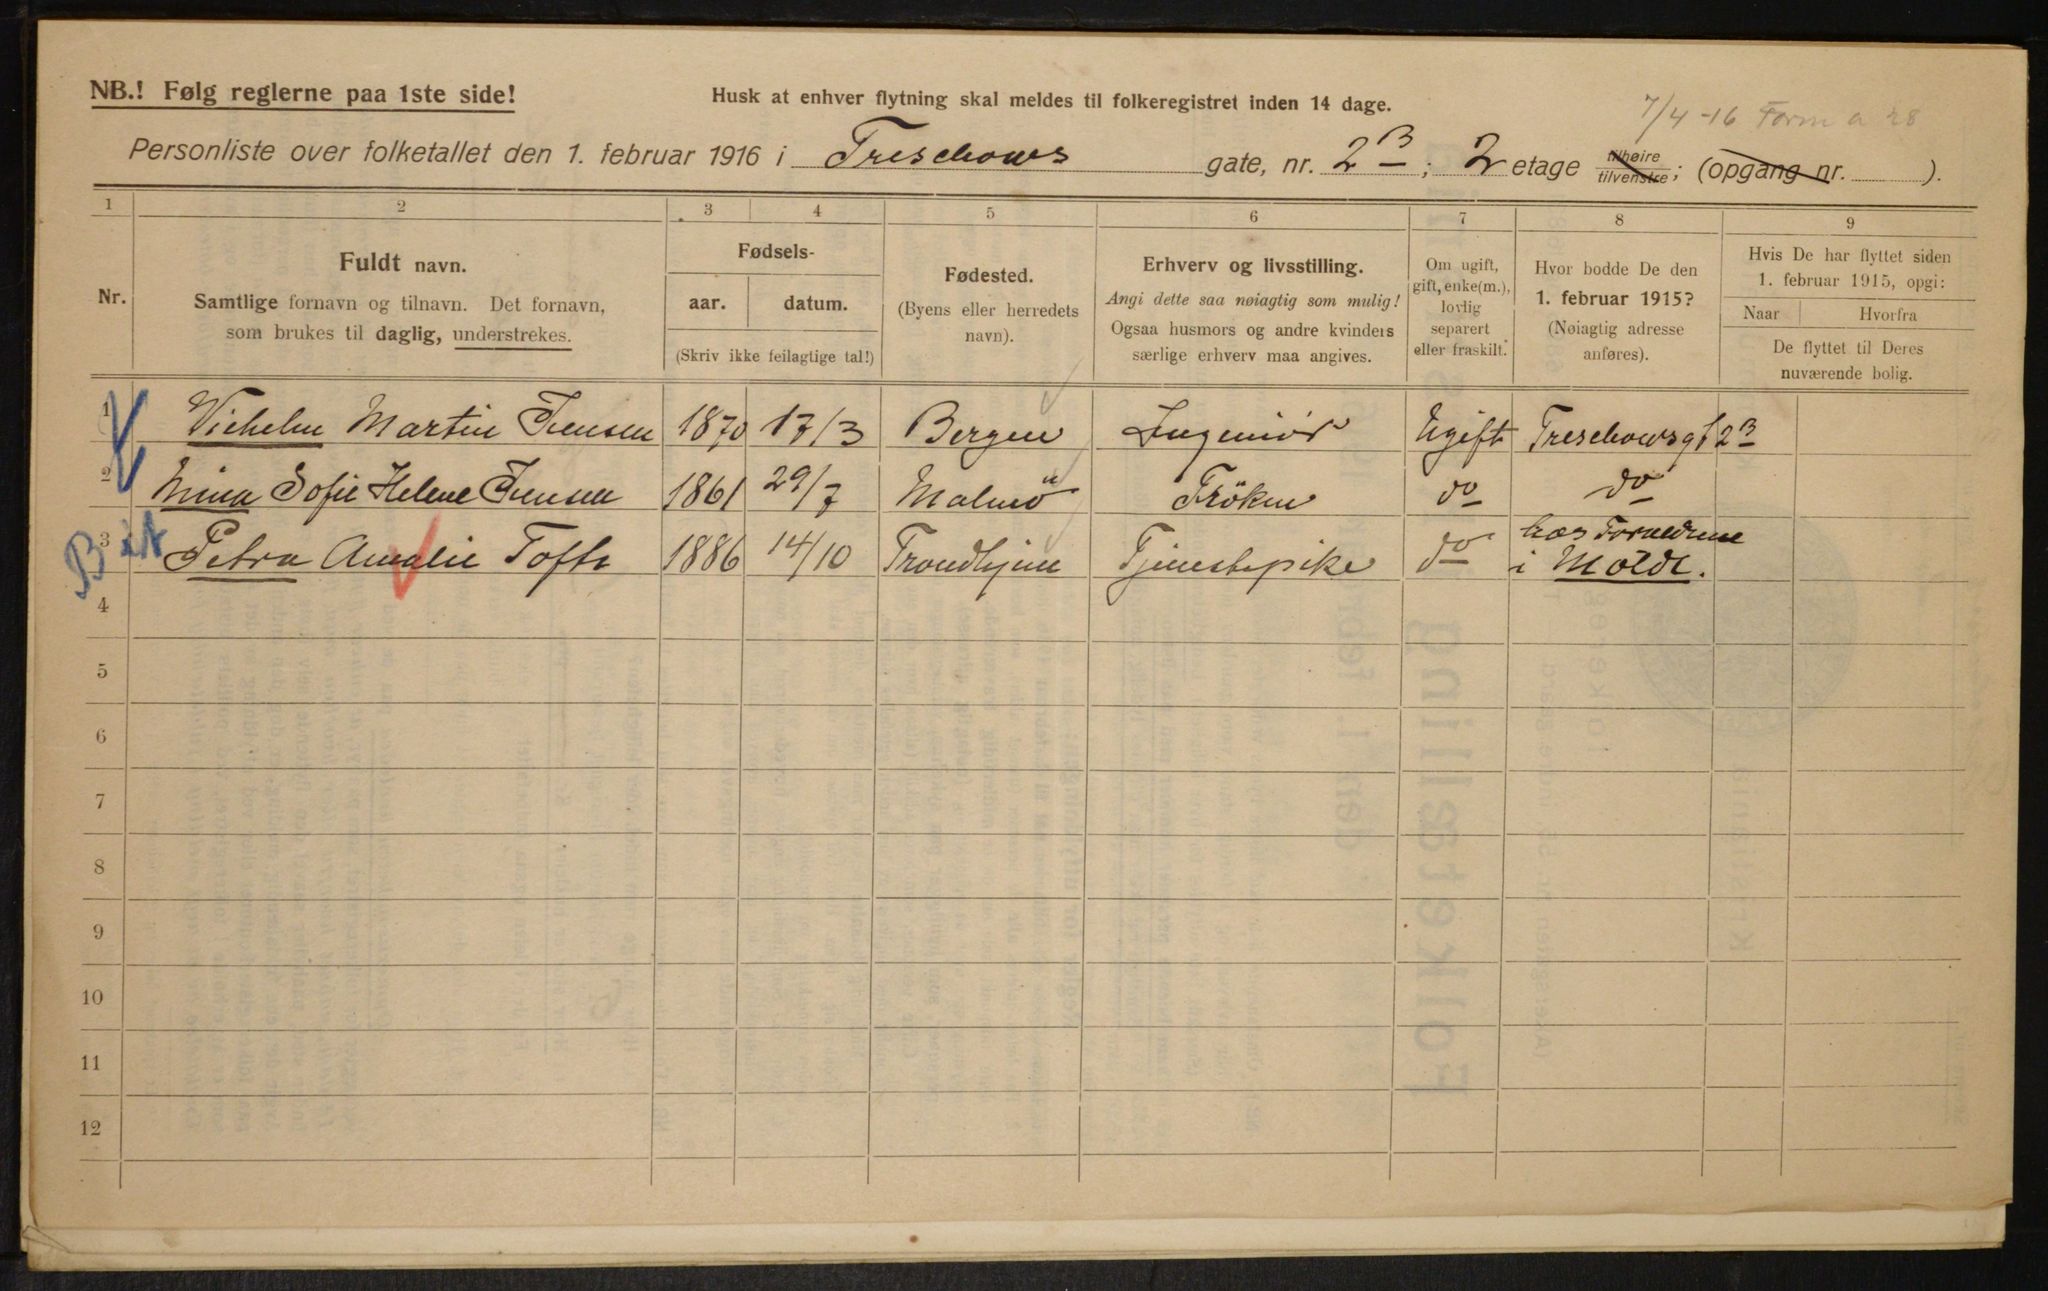 NB.! Følg reglerne paa 1ste side!
Husk at enhver flytning skal meldes til folkeregistret inden 14 dage.
7/4 -16 Form a 28
Personliste over folketallet den 1. februar 1916 i Treschows gate, nr. 2B; 2 etage tilhøire tilvenstre; (opgang nr. ).
1 2 3 4 5 6 7 8 9
Nr.
Fuldt navn.
Samtlige fornavn og tilnavn. Det fornavn,
som brukes til daglig, understrekes.
Fødsels-
aar. datum.
(Skriv ikke feilagtige tal!)
Fødested.
(Byens eller herredets
navn).
Erhverv og livsstilling.
Angi dette saa nøiagtig som mulig!
Ogsaa husmors og andre kvinders
særlige erhverv maa angives.
Om ugift,
gift, enke(m.),
lovlig
separert
eller fraskilt.
Hvor bodde De den
1. februar 1915?
(Nøiagtig adresse
anføres).
Hvis De har flyttet siden
1. februar 1915, opgi:
Naar Hvorfra
De flyttet til Deres
nuværende bolig.
1 Vilhelm Martin Iversen 1870 17/3 Bergen Ingeniør Ugift Treschowsgt 2B
2 Nina Sofie Helene Iversen 1861 29/7 Malmö Fröken do do
3 Petra Amalie Toft 1886 14/10 Trondhjem Tjenestepike do hos Forældrene
i Molde.
4
5
6
7
8
9
10
11
12